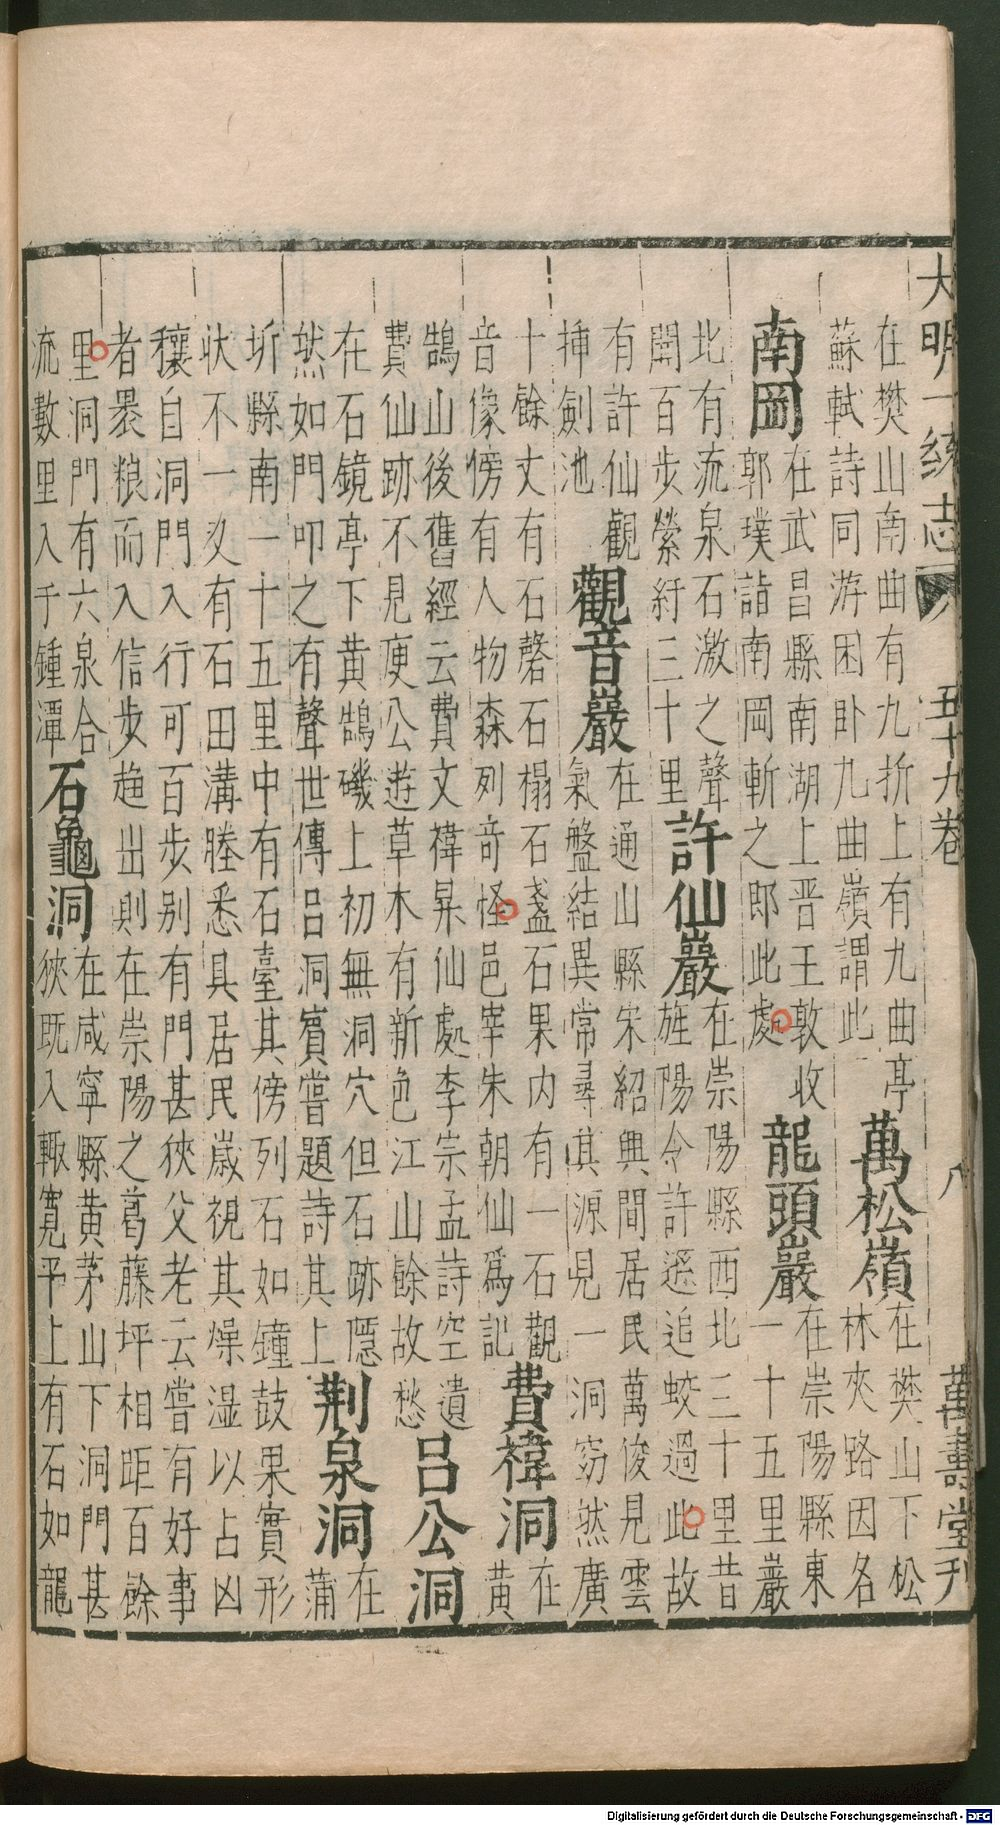 大明一統志 五十九卷 八 萬壽堂刊
在樊山南曲有九折上有九曲亭
蘇軾詩同游困卧九曲嶺謂此
萬松嶺
在樊山下松
林夾路因名
南岡
在武昌縣南湖上晋王敦收
郭璞詣南岡斬之即此處
龍頭巖
在崇陽縣東
一十五里巖
北有流泉石激之聲
聞百步縈紆三十里
許仙巖
在崇陽縣西北三十里昔
旌陽令許遜追蛟過此故
有許仙觀
揷劍池
觀音巖
在通山縣宋紹興間居民萬俊見雲
氣盤結異常尋其源見一洞窈然廣
十餘丈有石磬石榻石盞石果内有一石觀
音像傍有人物森列竒怪邑宰朱朝仙爲記
費禕洞
在
黄
鵠山後舊經云費文禕昇仙處李宗孟詩空遺
費仙跡不見庾公遊草木有新色江山餘故愁
吕公洞
在石鏡亭下黄鵠磯上初無洞穴但石跡隱
然如門叩之有聲世傳吕洞賓嘗題詩其上
荆泉洞
在
蒲
圻縣南一十五里中有石臺其傍列石如鐘鼓果實形
狀不一又有石田溝塍悉具居民歲視其燥湿以占凶
穰自洞門入行可百步别有門甚狹父老云嘗有好事
者褁粮而入信步趋出則在崇陽之葛藤坪相距百餘
里洞門有六泉合
流數里入于鍾潭
石龜洞
在咸寧縣黄茅山下洞門甚
狹既入輙寛平上有石如龍
Digitalisierung gefördert durch die Deutsche Forschungsgemeinschaft - DFG